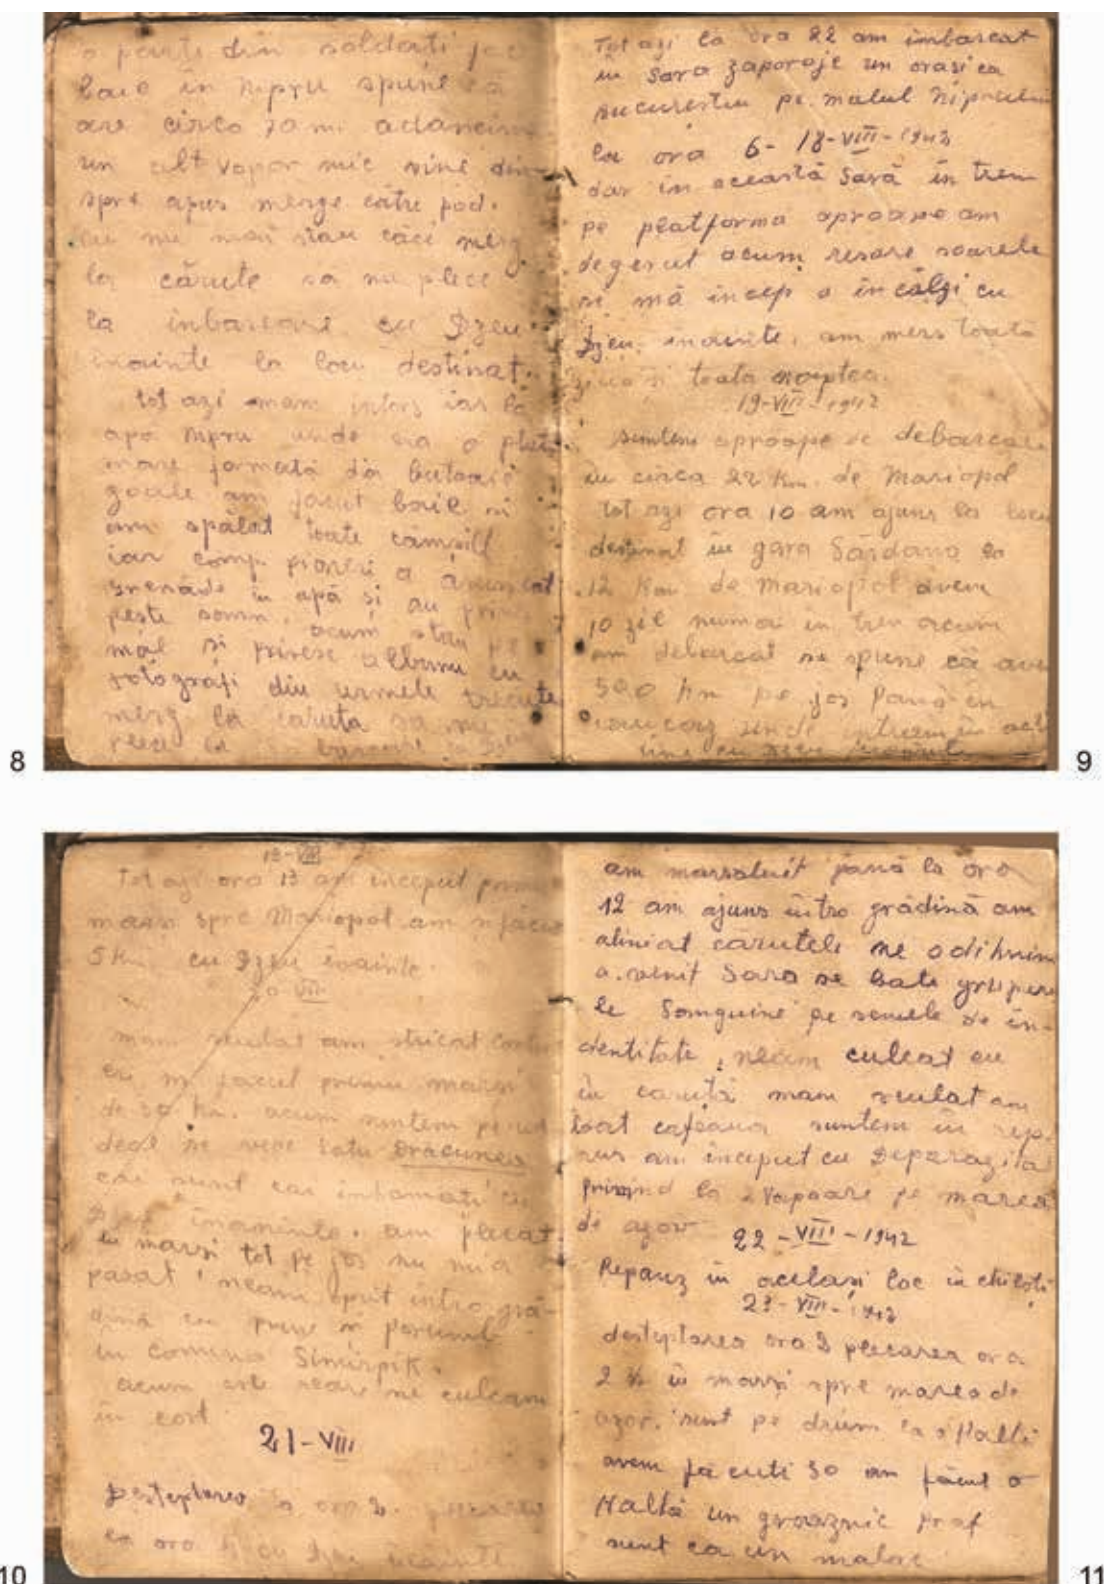 o parte din soldati fac
baie în Nipru spune că
are circa 70 m. adancime
un alt vapor mic vine din
spre apus merge către pod.
nu mai stau căci merg
la cărute sa nu plece
la inbarcare cu Dzeu
inainte la locu destinat.
tot azi mam intors iar la
apa Nipru unde era o pluta
mare formată din butoaie
goale am facut baie si
am spălat toate
iar comp. a aruncat
grenade in apă si au prins
peste somn, acum stau pe
mal si privesc albumu cu
fotografi din urmele trecute
merg la caruta sa nu
plece la
8
Tot azi la ora 22 am imbarcat
in Gara Zaporoje un oras ca
Bucurestiu pe malul Niprului
la ora 6- 18-VIII-1942
dar in această Gară in tren
pe platforma aproape am
degerat acum resare soarele
si mă incep a incălzi cu
Dzeu inainte, am mers toata
ziua si toata noaptea.
19-VIII-1942
suntem aproape de debarcare
in circa 22 Km. de Mariopol
tot azi ora 10 am ajuns la locu
destinat in gara Sardana la
12 Km de Mariopol avem
10 zile numa in tren acum
am debarcat se spune că avem
500 km pe jos Pană in
unde intrăm in
9
19-VIII
Tot azi ora 13 am inceput primu
mars spre Mariopol am făcut
5 Km. cu Dzeu inainte.
20-VIII
mam sculat am stricat
si facut primu mars
de 30 Km. acum suntem pe un
deal se vede satu
cai sunt cai inhamati cu
Dzeu inaninte. am plecat
in mars tot pe jos nu mia
pasat neam oprit intro gră-
dină cu prune si porumb
in comuna Simirpik.
acum este seare ne culcam
in cort
21-VIII
Desteptarea la ora 2. plecarea
la ora cu Dzeu inainte
10
am marsaluit pană la ora
12 am ajuns intro grădină am
aliniat carutele ne odihnim
a venit Gara se bate grupere
le Sanguine pe semele de in-
dentitate, neam culcat eu
in carută mam sculat am
loat cafeaua suntem in rep.
aus am inceput cu Deparazita
privind la 2 Vapoare pe marea
de azov
22-VIII-1942
Repauz in acelasi loc in chiloti
23-VIII-1942
desteptarea ora 2 plecarea ora
2 ½ in mars spre marea de
azov. sunt pe drum la o Haltă
avem făcuti 30 am făcut o
Haltă un groaznic praf
sunt ca un malac
11